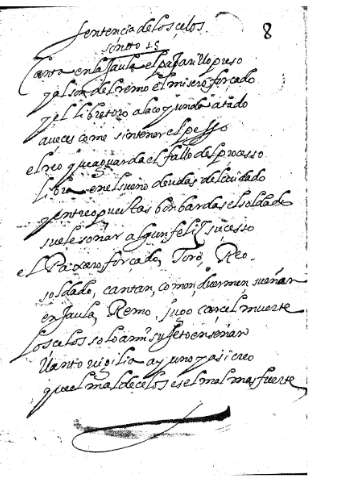 8
sentencia de los celos.
sonetto 15
Canta en la Jaula el pajarillo preso
y al son del remo el misero forçado
y el libre toro al aco yundo atado
a veces come sin tener el pesso
el reo que aguarda el fallo del processo
libre en el sueño de udas del cuidado
y entre opuestas bonbardas el soldado
suele soñar algun felis sucesso
el Paxaro forcado, Toro, Reo.
soldado, cantan, comen, duermen, sueñan
en Jaula, Remo, jugo carcel muerte
los celos solo a mi sujeto enseñan
llanto vigilia ayuno y asi creo
que el mal de celos es el mal mas fuerte